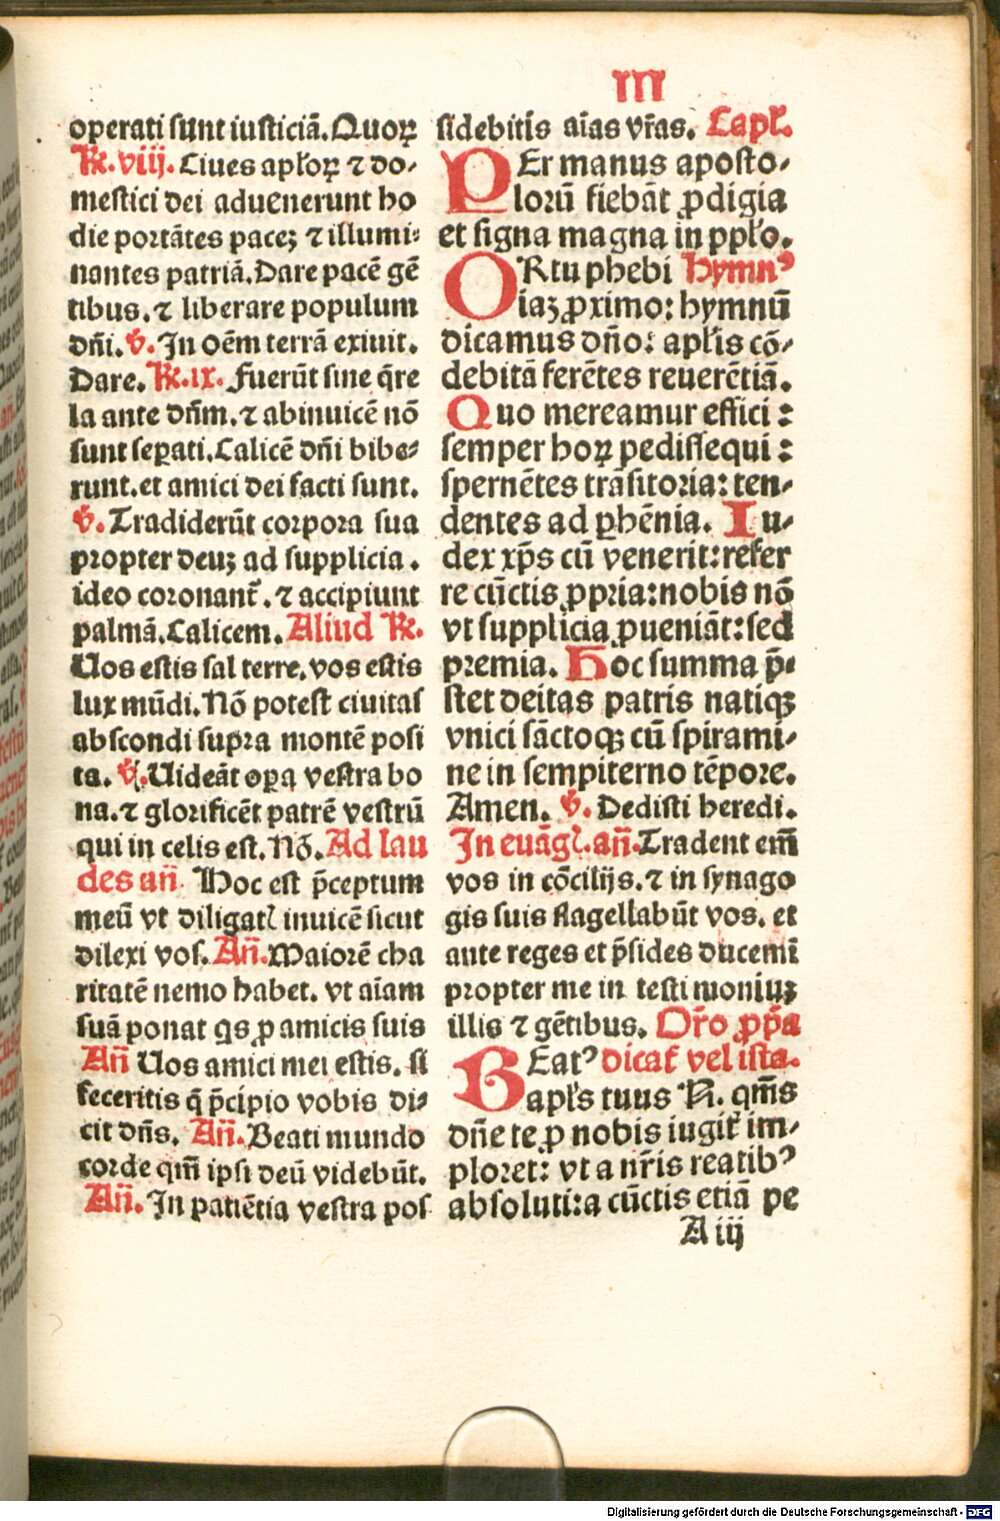 III
operati sunt iusticiā. Quoꝝ
℟. viij. Ciues apłoꝝ ⁊ do-
mestici dei aduenerunt ho
die portātes pacē ⁊ illumi-
nantes patriā. Dare pacē gē
tibus. ⁊ liberare populum
dn̄i. ℣. In oēm terrā exiuit.
Dare. ℟. ix. Fuerūt sine q̄re
la ante dn̄m. ⁊ abinuicē nō
sunt seꝑati. Calicē dn̄i bibe-
runt. et amici dei facti sunt.
℣. Tradiderūt corpora sua
propter deuꝫ ad supplicia.
ideo coronant᷑. ⁊ accipiunt
palmā. Calicem. Aliud ℟.
Uos estis sal terre. vos estis
lux mūdi. Nō potest ciuitas
abscondi supra montē posi
ta. ℣. Uideāt oꝑa vestra bo
na. ⁊ glorificēt patrē vestrū
qui in celis est. Nō. Ad lau
des an̄. Hoc est p̄ceptum
meū vt diligatꝭ inuicē sicut
dilexi vos. An̄. Maiorē cha
ritatē nemo habet. vt aīam
suā ponat qs ꝓ amicis suis
An̄ Uos amici mei estis. si
feceritis q̄ p̄cipio vobis di-
cit dn̄s. An̄. Beati mundo
corde qm̄ ipsi deū videbūt.
An̄. In patiētia vestra pos
sidebitis aīas vr̄as. Capł.
PEr manus aposto-
lorū fiebāt ꝓdigia
et signa magna in ppło.
ORtu phebi Hymnꝰ
iaꝫ ꝓximo: hymnū
dicamus dño: apłis cō-
debitā ferētes reuerētiā.
Quo mereamur effici:
semper hoꝝ pedissequi:
spernētes trāsitoria: ten-
dentes ad ꝑhēnia. Iu-
dex xp̄s cū venerit: refer
re cūctis ꝓpria: nobis nō
vt supplicia ꝓueniāt: sed
premia. Hoc summa p̄-
stet deitas patris natiqꝫ
vnici sāctoqꝫ cū spirami-
ne in sempiterno tēpore.
Amen. ℣. Dedisti heredi.
In euāgꝭ. an̄. Tradent em̄
vos in cōcilijs. ⁊ in synago
gis suis flagellabūt vos. et
ante reges et p̄sides ducemi
propter me in testimoniuꝫ
illis ⁊ gētibus. Or̄o ꝓp̄a
BEatꝰ dicat᷑ vel ista.
apłs tuus N. qm̄s
dn̄e te ꝓ nobis iugit᷑ im-
ploret: vt a nr̄is reatibꝰ
absoluti: a cūctis etiā pe
A iij
Digitalisierung gefördert durch die Deutsche Forschungsgemeinschaft - DFG